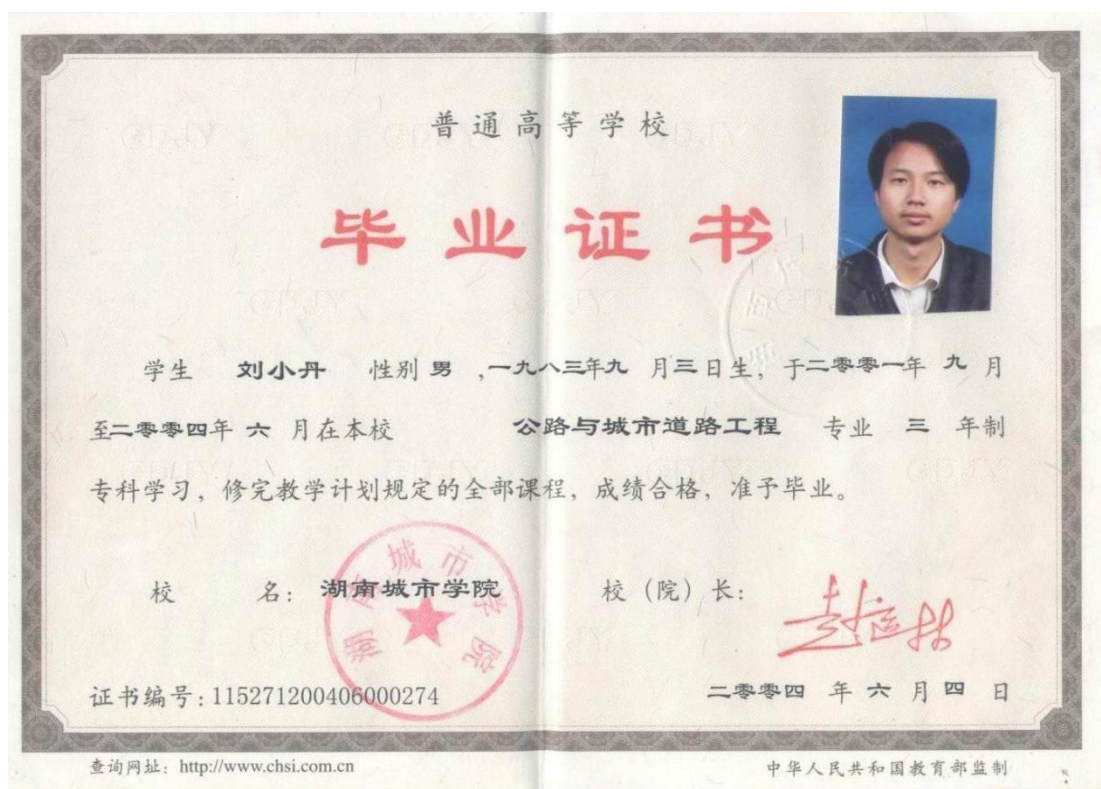 普通高等学校
毕业证书
学生 刘小丹 性别 男 ,一九八三年九 月三日生,于二零零一年 九 月
至二零零四年 六 月在本校 公路与城市道路工程 专业 三 年制
专科学习,修完教学计划规定的全部课程,成绩合格,准予毕业。
校 名: 湖南城市学院 校(院)长:
湖南城市学院
证书编号:115271200406000274 二零零四 年 六 月 四 日
查询网址:http://www.chsi.com.cn 中华人民共和国教育部监制